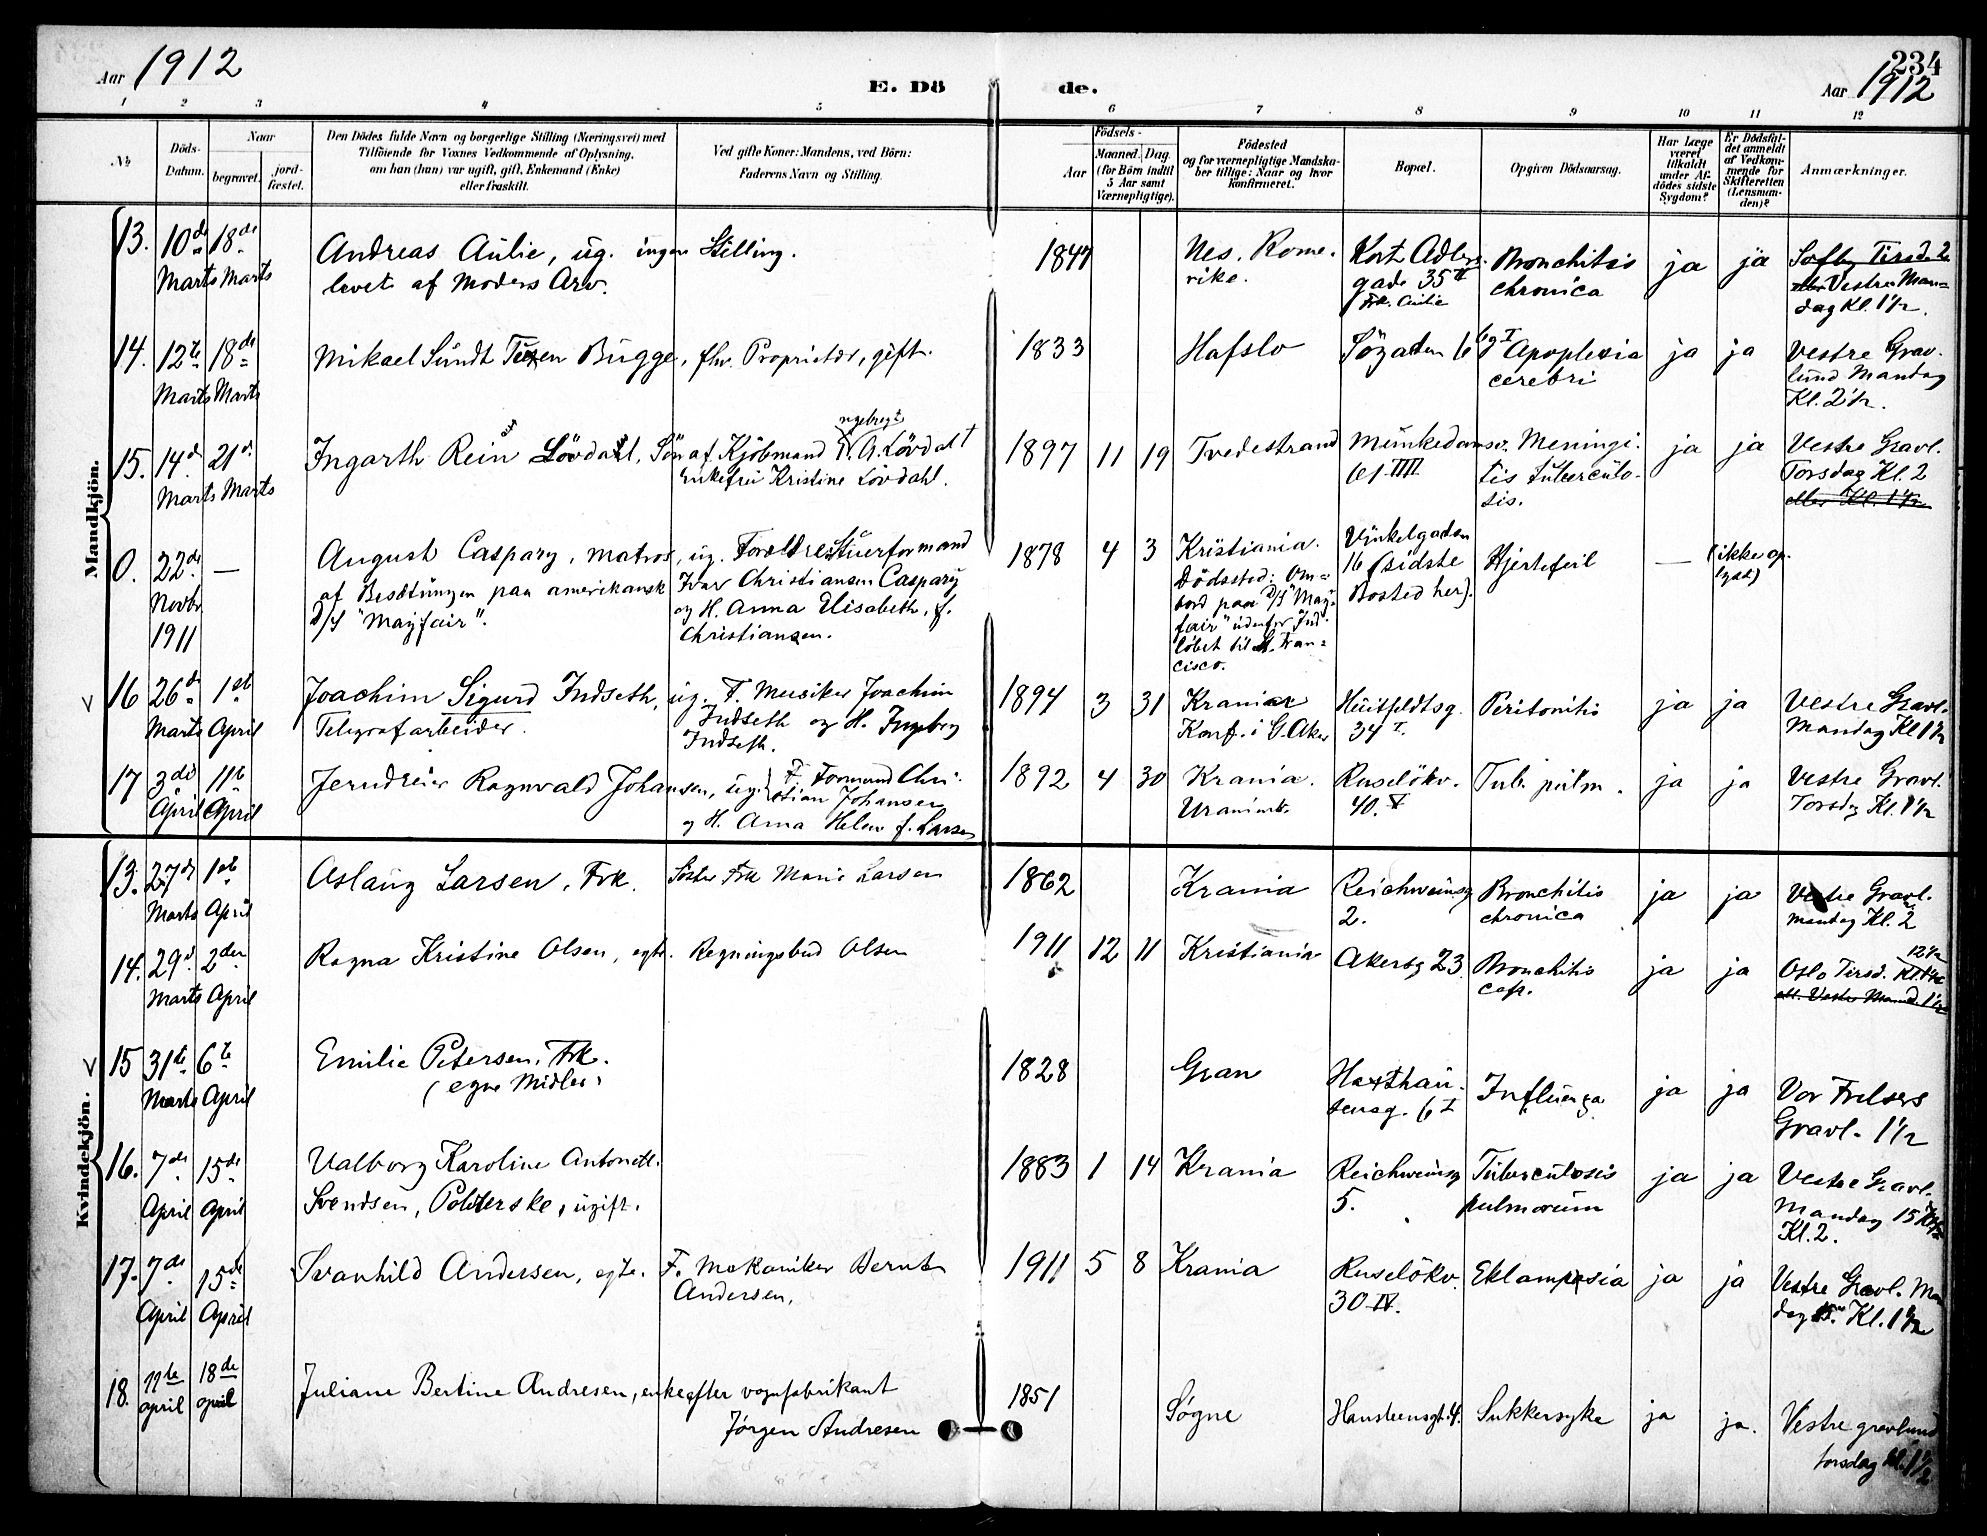 Aar 1912
E. Döde.
234
Aar 1912
1 2 3 4 5 6 7 8 9 10 11 12
No.
Döds-Datum.
Naar
begravet.
jord-fæstet.
Den Dödes fulde Navn og borgerlige Stilling (Næringsvei) med
Tilföiende for Voxnes Vedkommende af Oplysning,
om han (hun) var ugift, gift, Enkemand (Enke)
eller fraskilt.
Ved gifte Koner: Mandens, ved Börn:
Faderens Navn og Stilling.
Födsels-
Aar
Maaned. Dag.
(for Börn indtil
5 Aar samt
Værnepligtige).
Födested
og for værnepligtige Mandska-
ber tillige: Naar og hvor
konfirmeret.
Bopæl.
Opgiven Dödsaarsag.
Har Læge
været
tilkaldt
under Af-
dödes sidste
Sygdom?
Er Dödsfal-
det anmeldt
af Vedkom-
mende for
Skifteretten
(Lensman-
den)?
Anmærkninger.
Mandkjön.
13. 10de Marts 18de Marts
Andreas Aulie, ug. ingen Stilling.
levet af Moders Arv.
1847
Nes. Rome-
rike.
Kort Adlers
gade 35 II
frk. Aulie
Bronchitis
chronica
ja ja
Tirsd. 2
eller Vestre Man=
dag Kl. 1½.
14. 12te Marts 18de Marts
Mikael Sundt Tuxen Bugge, fhv. Proprietær, gift.
1833
Hafslo
6 I
Apoplexia
cerebri
ja ja
Vestre Grav-
lund Mandag
Kl. 2½.
15. 14de Marts 21de Marts
Ingarth Rein Lövdahl, Sön af Kjöbmand A. Lövdahl
Enkefru Kristine Lövdahl.
1897 11 19
Tvedestrand
Munkedamsv.
61 IIII
Meningi-
tis tuberculo-
sis.
ja ja
Vestre Gravl.
Torsdag Kl. 2
eller Kl. 1½
0. 22de Novbr 1911 —
August Caspary, matros, ug. Forældre: Stuerformand
af Besætningen paa amerikansk Ivar Christiansen Caspary
D/S "Mayfair". og H. Anna Elisabeth, f.
Christiansen.
1878 4 3
Kristiania.
Dödssted: Om=
bord paa D/S "May=
fair" udenfor Ind-
löbet til St. Fran=
cisco.
Vinkelgaden
16 (sidste
Bosted her).
Hjertefeil
—
(ikke op-
lyst)
16 26de Marts 1ste April
Joachim Sigurd Indseth, ug. F. Musiker Joachim
Telegrafarbeider. Indseth og H. Ingeborg
Indseth.
1894 3 31
Krania
Konf. i G. Aker
Huitfeldtsg.
34 I.
Peritonitis
ja ja
Vestre Gravl.
Mandag Kl 1½
17 3die April 11te April
Ragnvald Johansen, ug. F. Formand Chri-
stian Johansen
og H. Anna Helene f. Larsen
1892 4 30
Krania.
Uranienb.
Ruselökv.
40. V
Tub. pulm.
ja ja
Vestre Gravl.
Torsdag Kl. 1½
Kvindekjön.
13. 27de Marts 1ste April
Aslaug Larsen, Frk. Söster Frk Marie Larsen
1862
Krania
Reichweinsg
2.
Bronchitis
chronica
ja ja
Vestre Gravl.
Mandag Kl. 2
14. 29de Marts 2den April
Ragna Kristine Olsen, egte. Regningsbud Olsen
1911 12 11
Kristiania
Akersg 23
Bronchitis
cap.
ja ja
12½
Oslo Tirsd. Kl. 1½
ell. Vestre Mand. 1½
15 31te Marts 6te April
Emilie Petersen, Frk.
(egne Midler)
1828
Gran
Haxthau-
sensg. 6 I
Influenza
ja ja
Vor Frelsers
Gravl. 1½
16. 7de April 15de April
Valborg Karoline Antonette
Svendsen, Polderske, ugift.
1883 1 14
Krania
Reichweinsg
5.
Tuberculosis
pulmorum
ja ja
Vestre Gravl.
Mandag 15
Kl. 2.
17. 7de April 15de April
Svanhild Andersen, egte. F. Mekaniker Bernt
Andersen,
1911 5 8
Krania
Ruselökv.
30 IV.
Eklampsia
ja ja
Vestre Gravl. Man
dag Kl. 1½
18. 11te april 18de april
Juliane Bertine Andresen, enke efter vognfabrikant
Jörgen Andresen
1851
Søgne
Hansteensgt. 4.
Sukkersyke
ja ja.
Vestre gravlund
torsdag kl. 1½